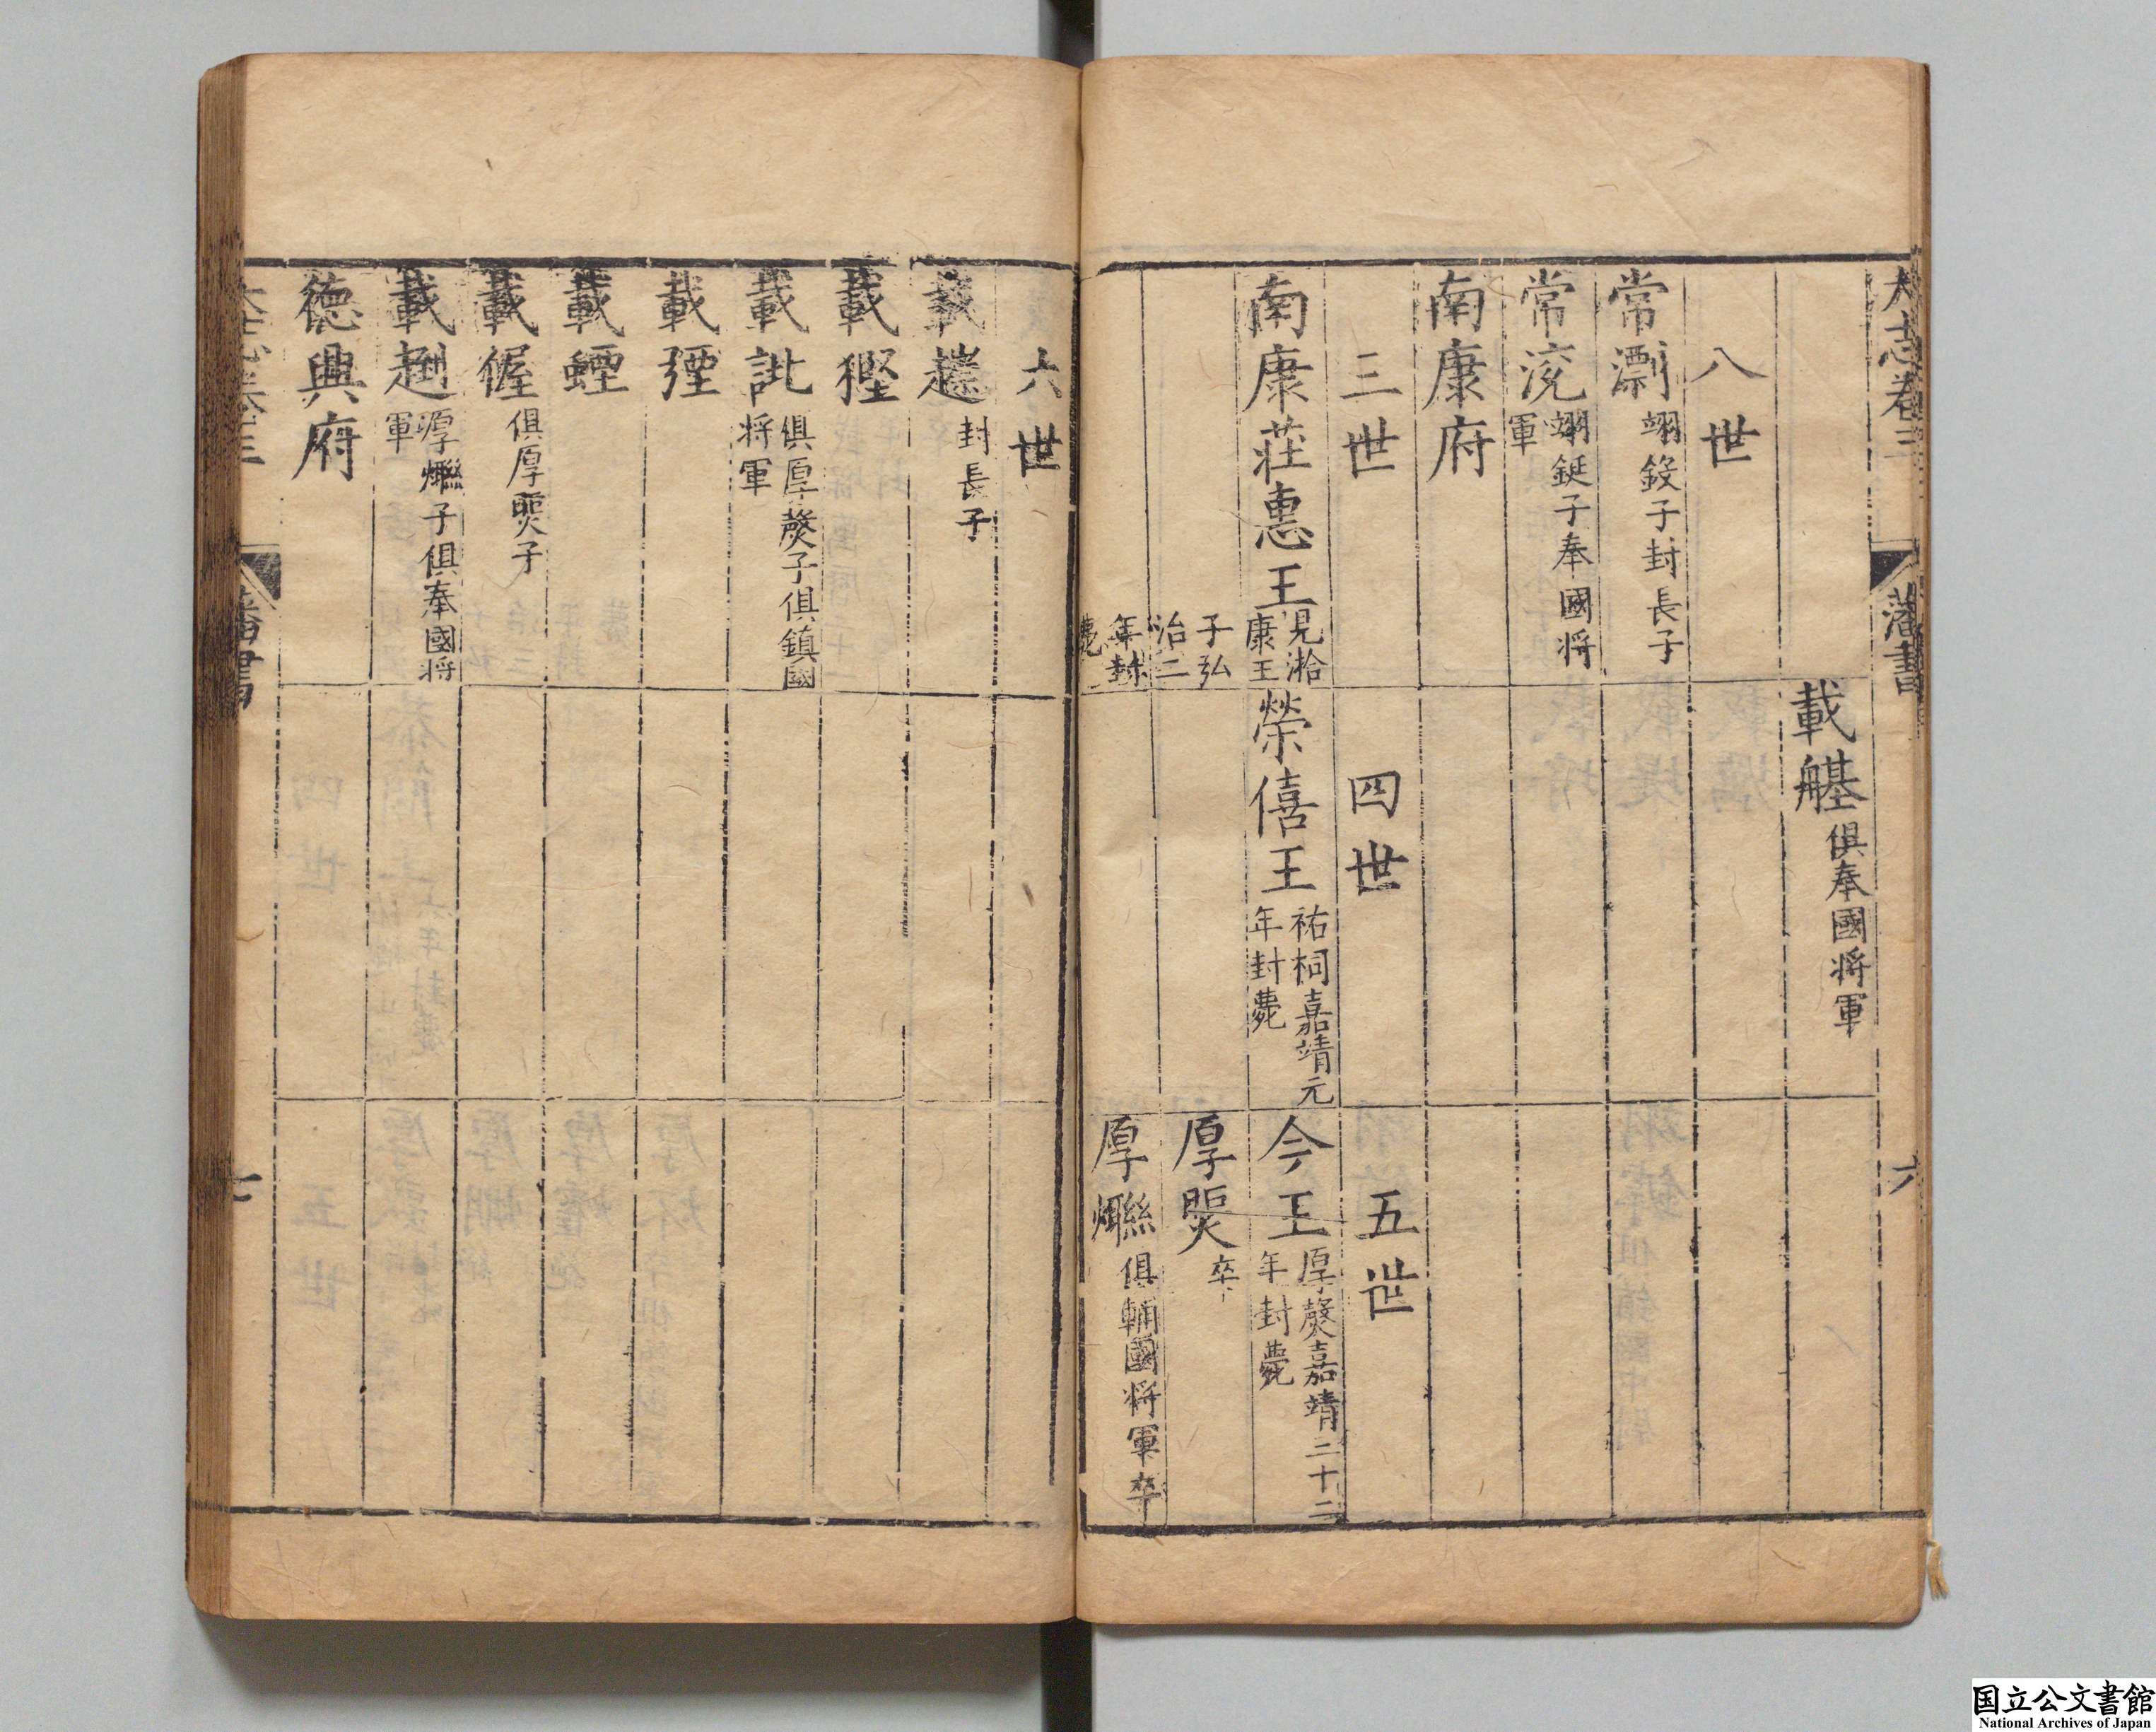 大志卷三 藩書 六
載𦪌俱奉國将軍
八世
常㵾翊鋄子封長子
常淁翊鋌子奉國将
軍
南康府
三世 四世 五世
南康莊惠王見湁
康王
子弘
治二
年封
薨
榮僖王祐桐嘉靖元
年封薨
今王厚嘉靖二十二
年封薨
厚卒
厚俱輔國将軍卒
六世
載封長子
載
載訿俱厚子俱鎮國
将軍
載
載
載偓俱厚子
載厚子俱奉國将
軍
德興府
大志卷三 藩書 七
国立公文書館
National Archives of Japan